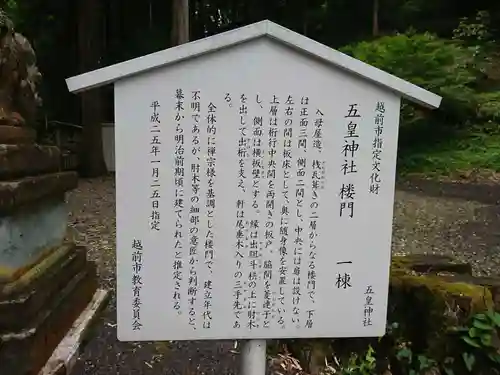 越前市指定文化財
五皇神社 楼門 一棟
五皇神社
入母屋造、桟瓦葺きの二層からなる楼門で、下層
は正面三間、側面二間とし、中央には扉は設けない。
左右の間は板床として、奥に随身像を安置している。
上層は桁行中央を両開きの板戸、脇間を菱連子と
し、側面は横板壁とする。縁は出腰斗栱の上に肘木
を出して出桁を支え、軒は尾垂木入りの三手先であ
る。
全体的に禅宗様を基調とした楼門で、建立年代は
不明であるが、肘木等の細部の意匠から判断すると、
幕末から明治前期頃に建てられたと推定される。
平成二五年一月二五日指定
越前市教育委員会
五皇神社